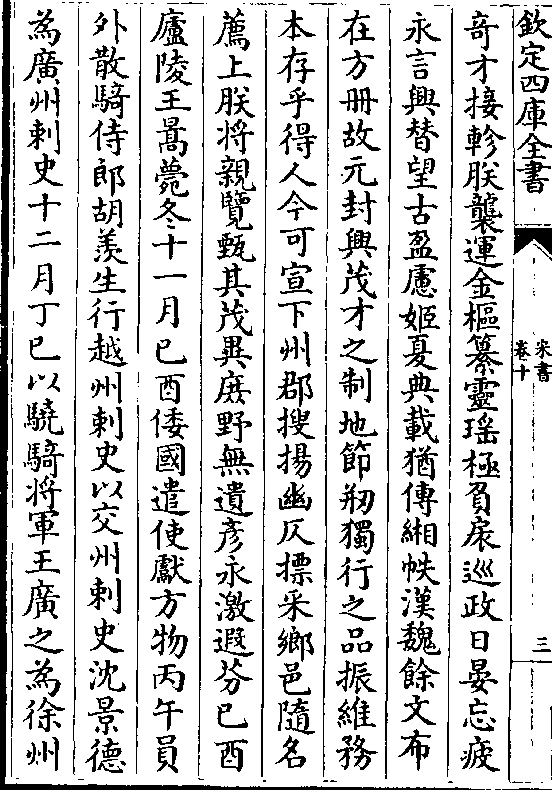 欽定四庫全書
宋書
卷十
三
竒才接軫朕襲運金樞纂靈瑶極負扆巡政日晏忘疲
永言興替望古盈慮姬夏典載猶傳緗帙漢魏餘文布
在方冊故元封興茂才之制地節刱獨行之品振維務
本存乎得人今可宣下州郡搜揚幽仄摽采鄉邑隨名
薦上朕将親覽甄其茂異庶野無遺彦永激遐芬己酉
廬陵王暠薨冬十一月己酉倭國遣使獻方物丙午員
外散騎侍郎胡羨生行越州刺史以交州刺史沈景德
為廣州刺史十二月丁巳以驍騎将軍王廣之為徐州